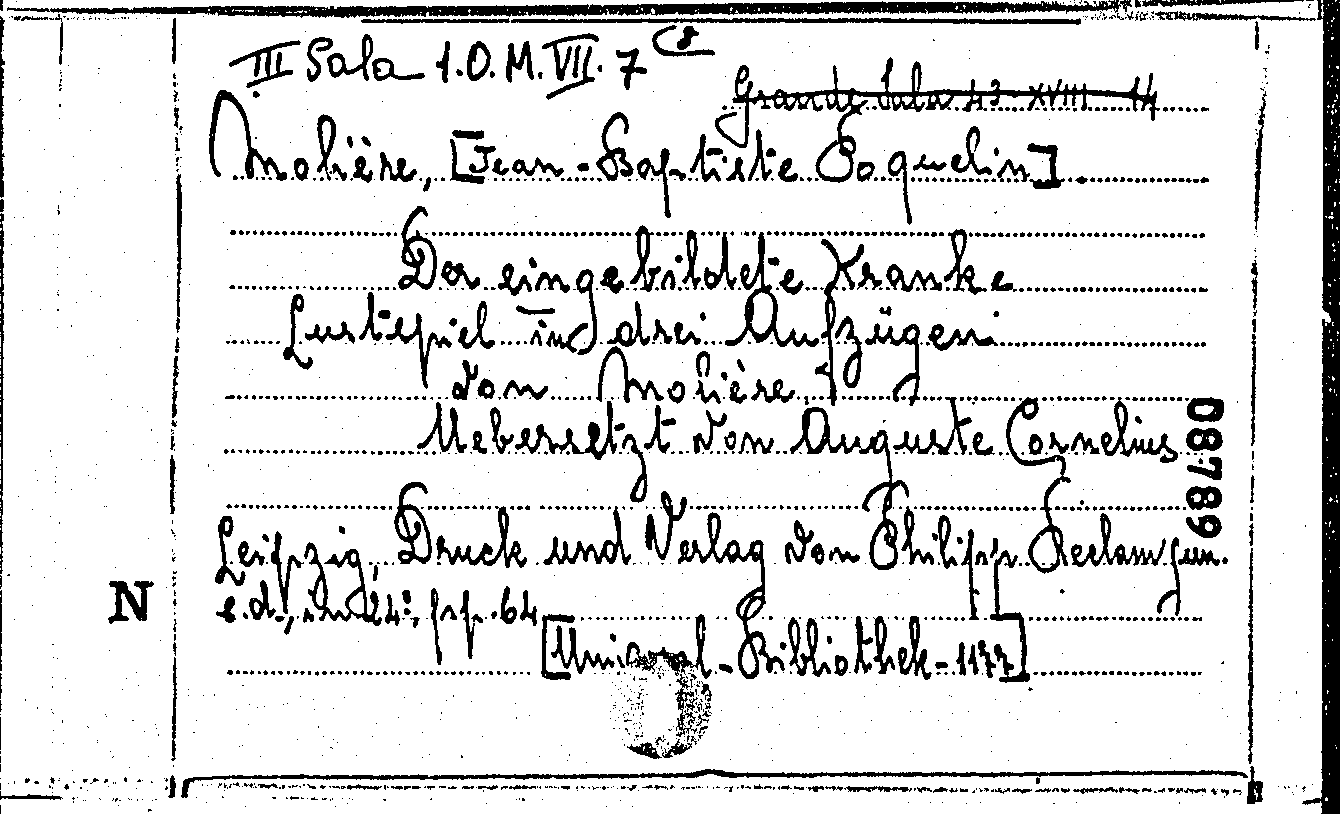 III Sala 1.O.M.VII.7 (8
Grande Sala 43-XVIII-14
Molière, [Jean-Baptiste Poquelin].
Der eingebildete Kranke
Lustspiel in drei Aufzügen
von Molière.
Uebersetzt von Auguste Cornelius
08789
Leipzig, Druck und Verlag von Philipp Reclam jun.
N
s.d., in 24º, pp. 64
[Universal-Bibliothek-1177]